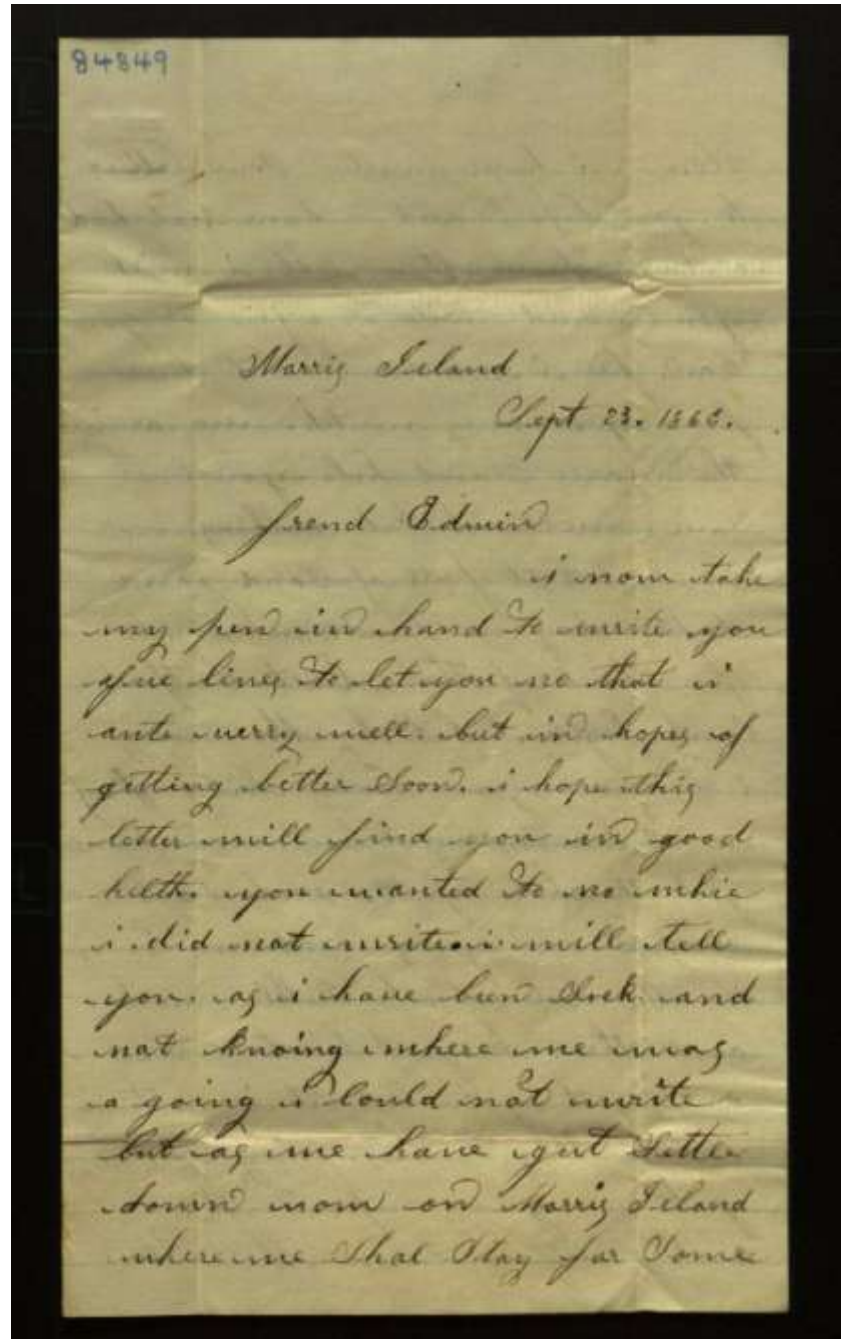 84849
Morris Island
Sept 23. 1863.
frend Edwin
i now take
my pen in hand to write you
a fue lines to let you no that i
ante verry well. but in hopes of
getting better Soon. i hope this
letter will find you in good
helth. you wanted to no whie
i did not write. i will tell
you. as i have bun Sick and
not knoing where we was
a going i Could not write
but as we have gut Settle
down now on Morris Island
where we Shal Stay for Some